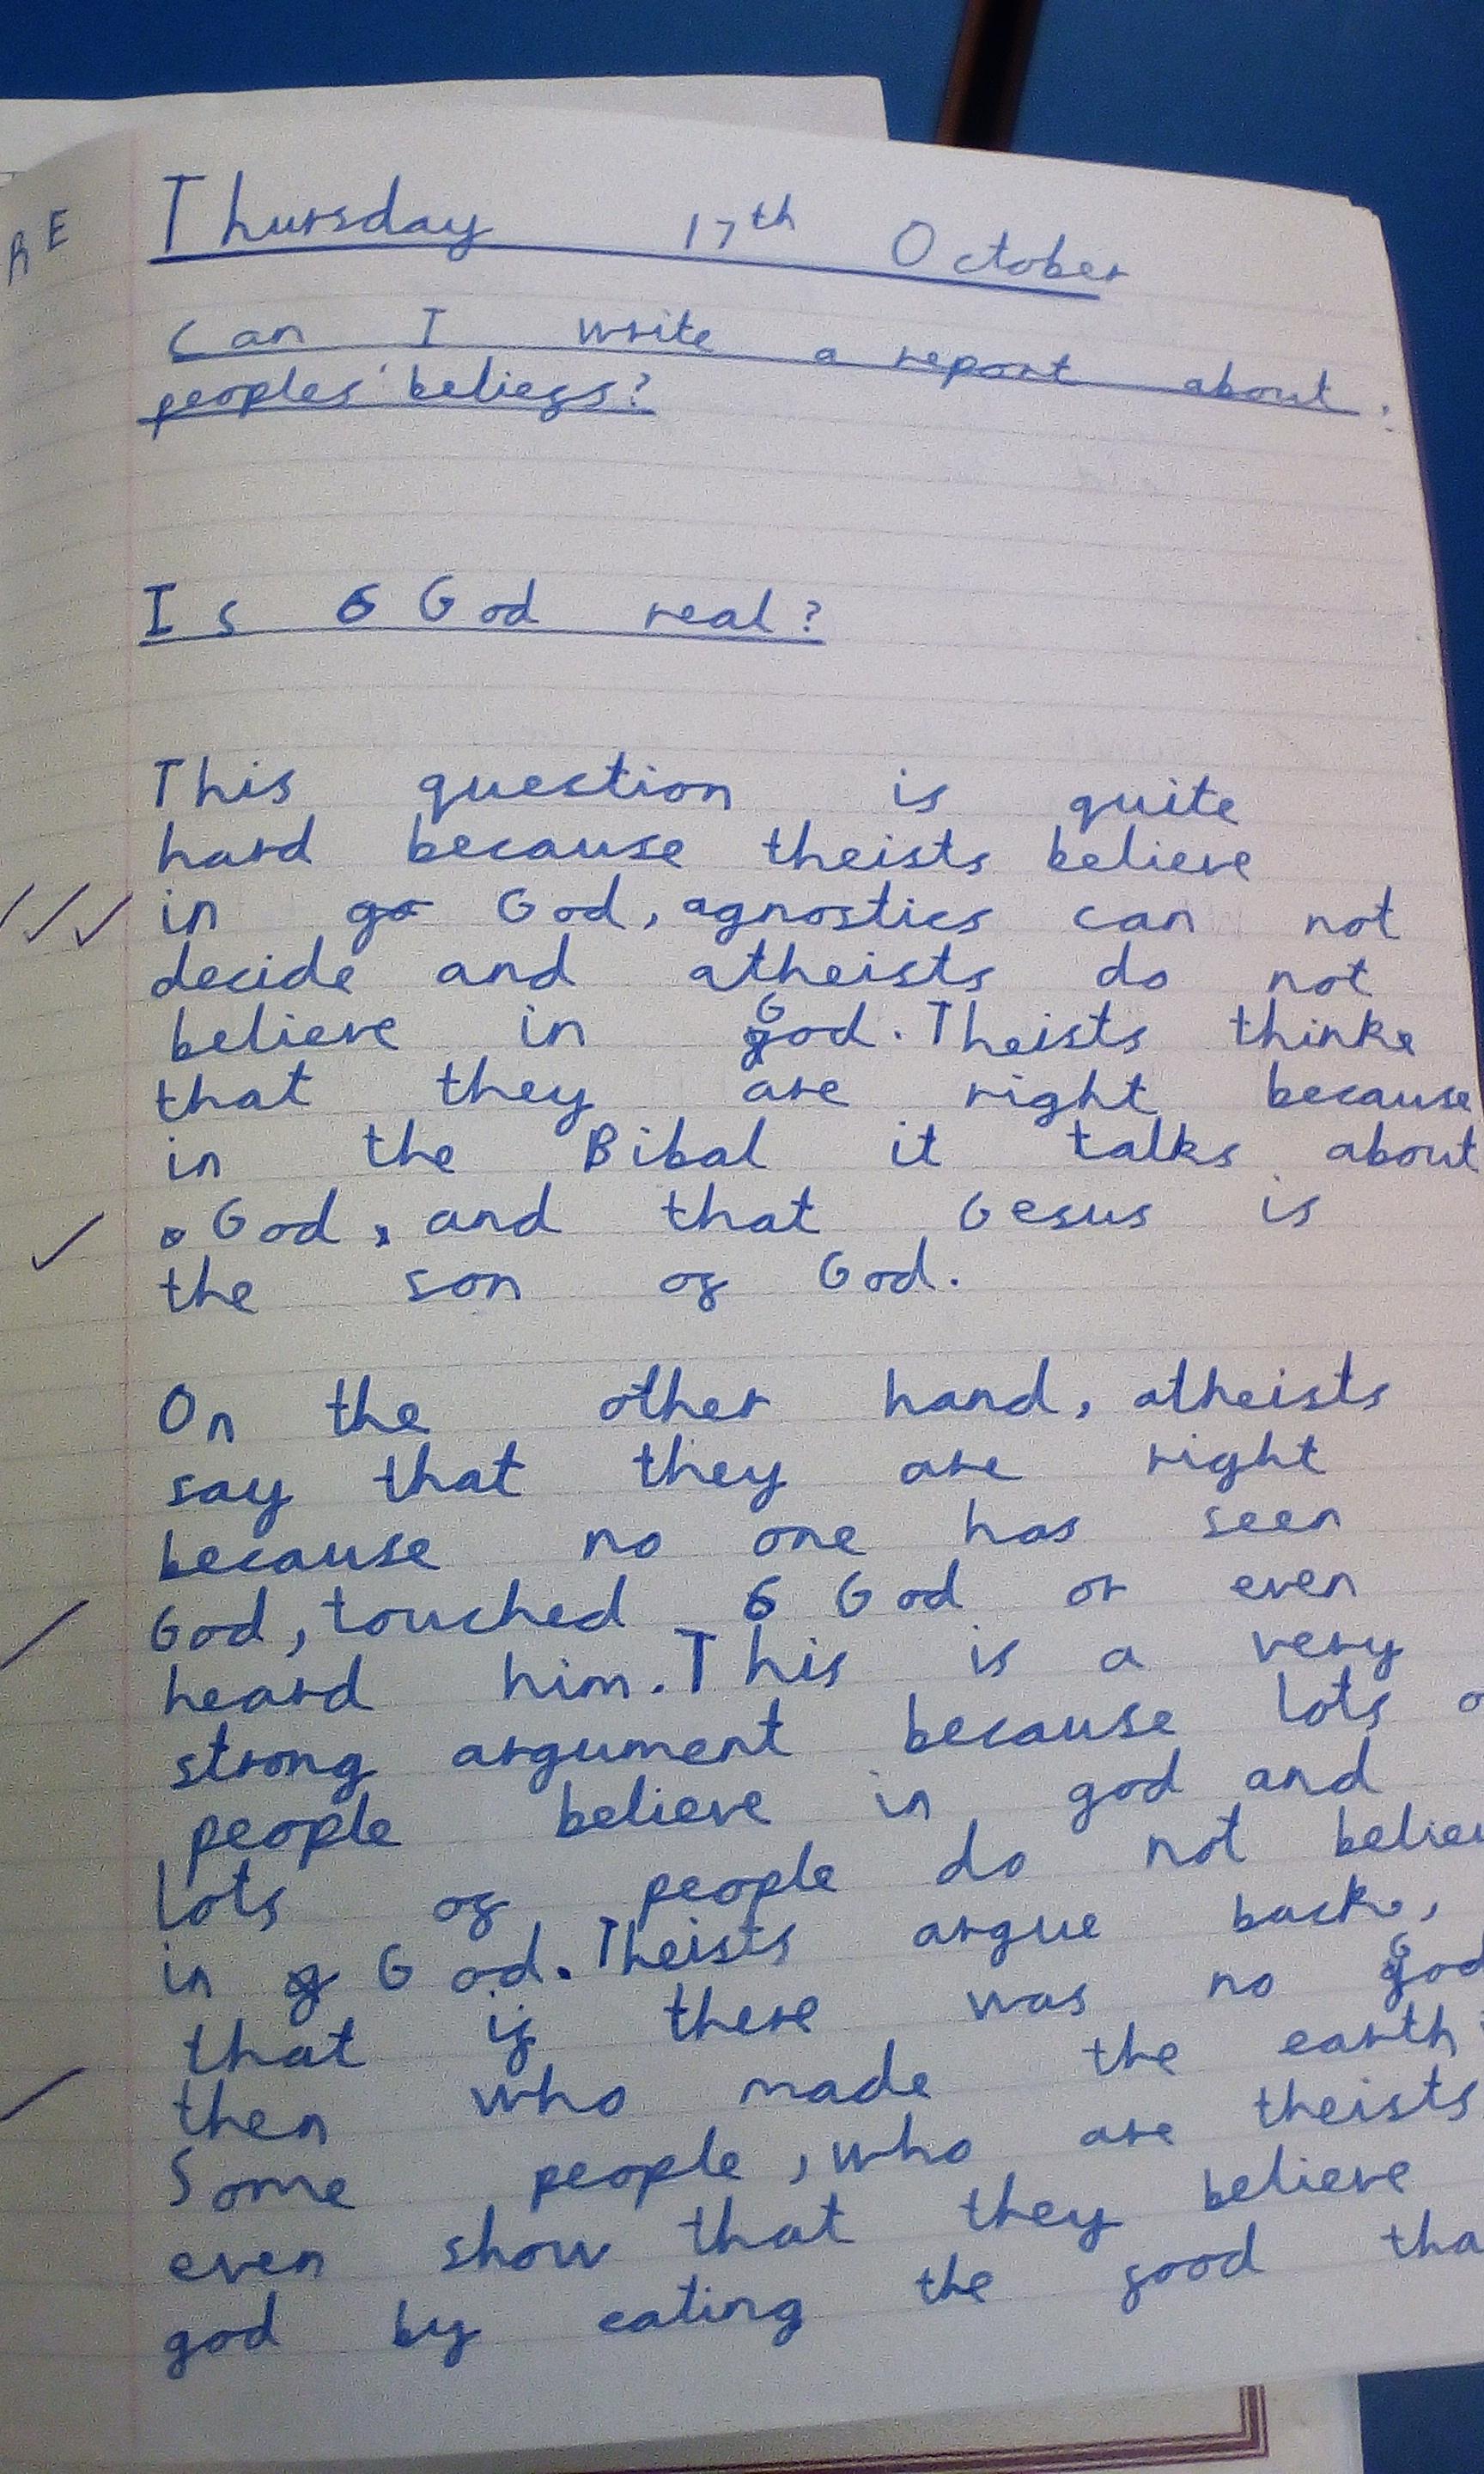 RE
Thursday 17th October
Can I write a report about
peoples' beliefs?
Is God real?
This question is quite
hard because theists believe
in God, agnostics can not
decide and atheists do not
believe in God. Theists think
that they are right because
in the Bibal it talks about
God, and that Gesus is
the son of God.
On the other hand, atheists
say that they are right
because no one has seen
God, touched God or even
heard him. This is a very
strong argument because lots
people believe in god and
lots of people do not
in God. Theists argue back,
that if there was no God
then who made the earth
Some people, who are theists
even show that they believe
god by eating the food